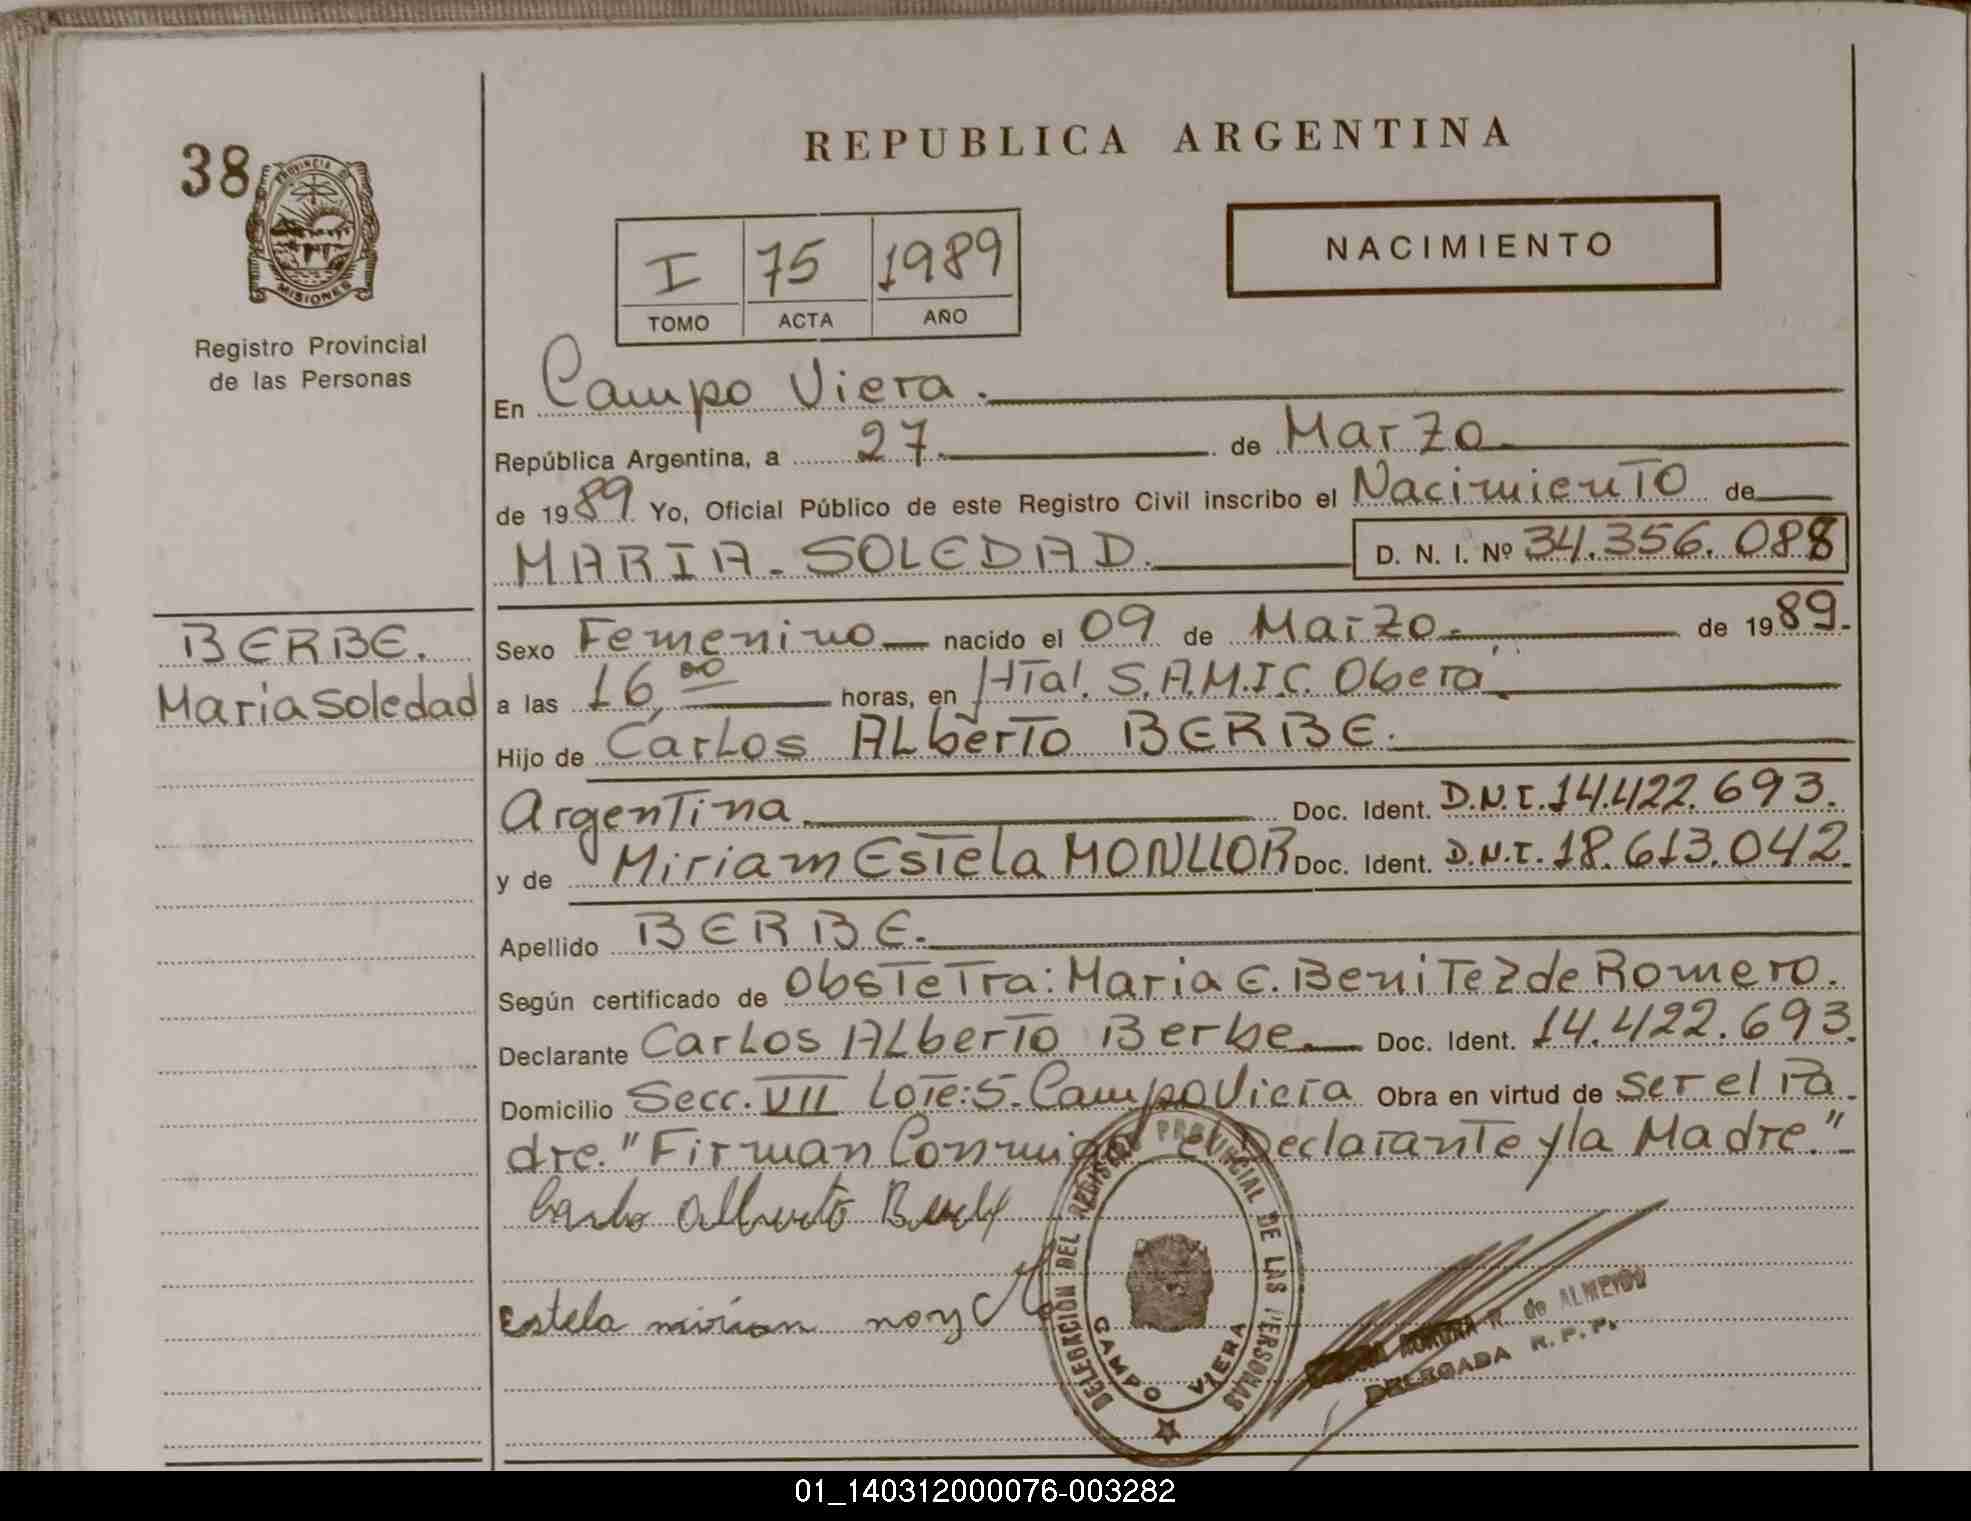 REPUBLICA ARGENTINA
38
PROVINCIA DE
MISIONES
Registro Provincial
de las Personas
I 75 1989
TOMO ACTA AÑO
NACIMIENTO
En Campo Viera.
República Argentina, a 27 de Marzo
de 1989 Yo, Oficial Público de este Registro Civil inscribo el Nacimiento de
MARIA-SOLEDAD. D. N. I. Nº 34.356.088
BERBE.
Maria Soledad
Sexo Femenino nacido el 09 de Marzo.- de 1989.
a las 16,00 horas, en Htal. S.A.M.I.C. Obera,
Hijo de Carlos ALberto BERBE.
Argentina Doc. Ident. D.N.I. 14.422.693.
y de Miriam Estela MONLLOR Doc. Ident. D.N.I. 18.613.042.
Apellido BERBE.
Según certificado de Obstetra: Maria E. Benitez de Romero.
Declarante Carlos ALberto Berbe. Doc. Ident. 14.422.693.
Domicilio Secc. VII Lote: 5. Campo Viera Obra en virtud de ser el Pa
dre. "Firman Conmigo el Declarante y la Madre."
Carlo Alberto
Estela mirian
DELEGACIÓN DEL REGISTRO PROVINCIAL DE LAS PERSONAS
CAMPO VIERA
R. de ALMEYDA
DELEGADA R.P.P.
01_140312000076-003282